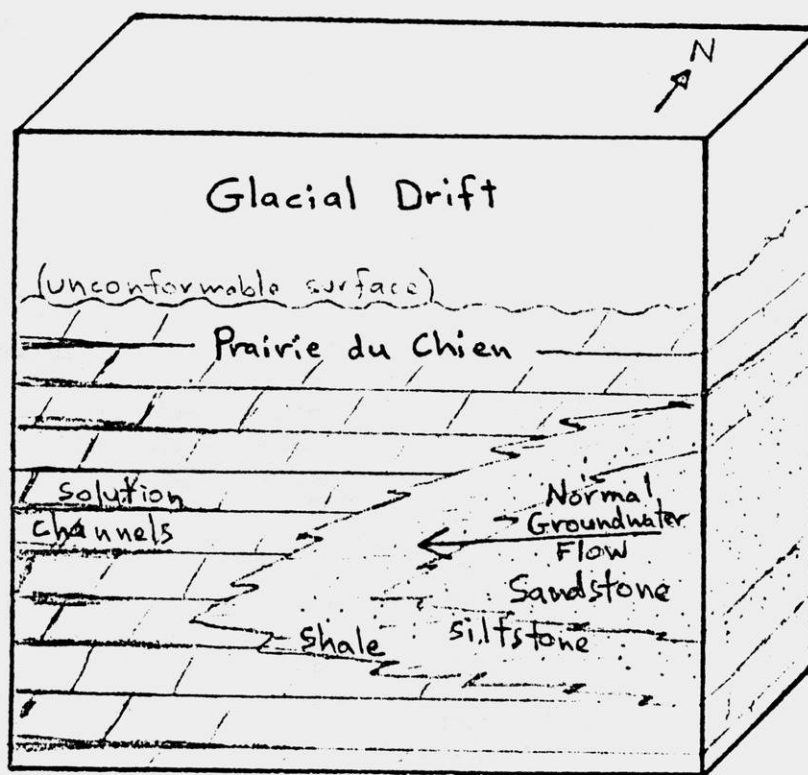 N
Glacial Drift
(unconformable surface)
Prairie du Chien
solution
channels
Normal
Groundwater
Flow
Sandstone
siltstone
shale